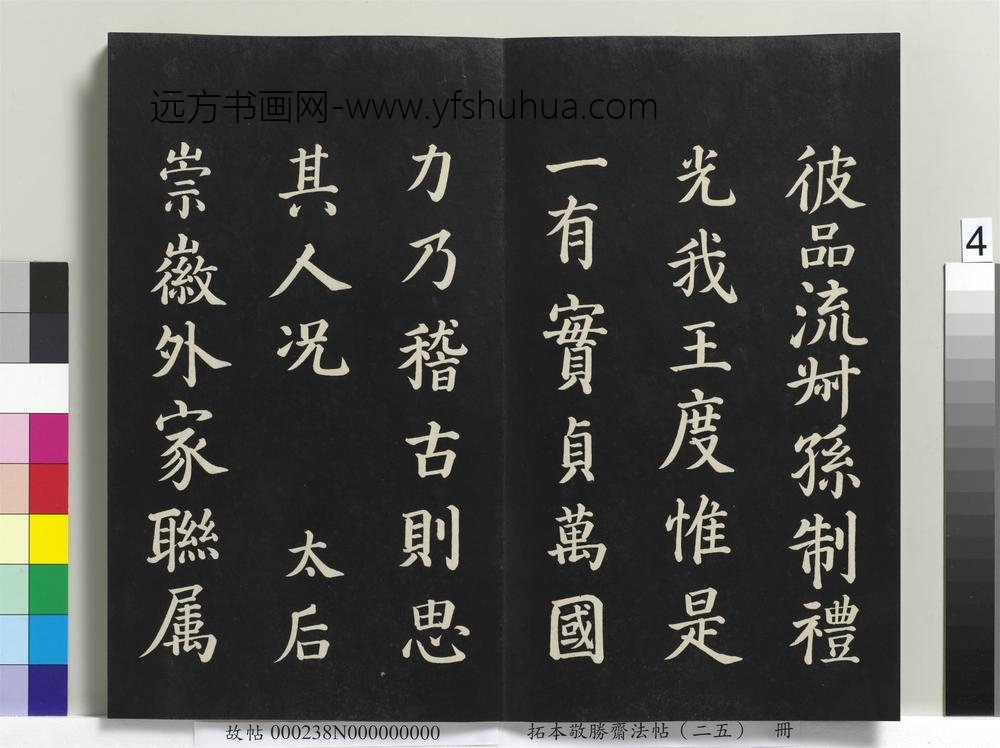 远方书画网-www.yfshuhua.com
彼品流叔孫制禮
光我王度惟是
一有實貞萬國
力乃稽古則思
其人況 太后
崇徽外家聯属
4
故帖 000238N000000000
拓本敬勝齋法帖（二五） 冊